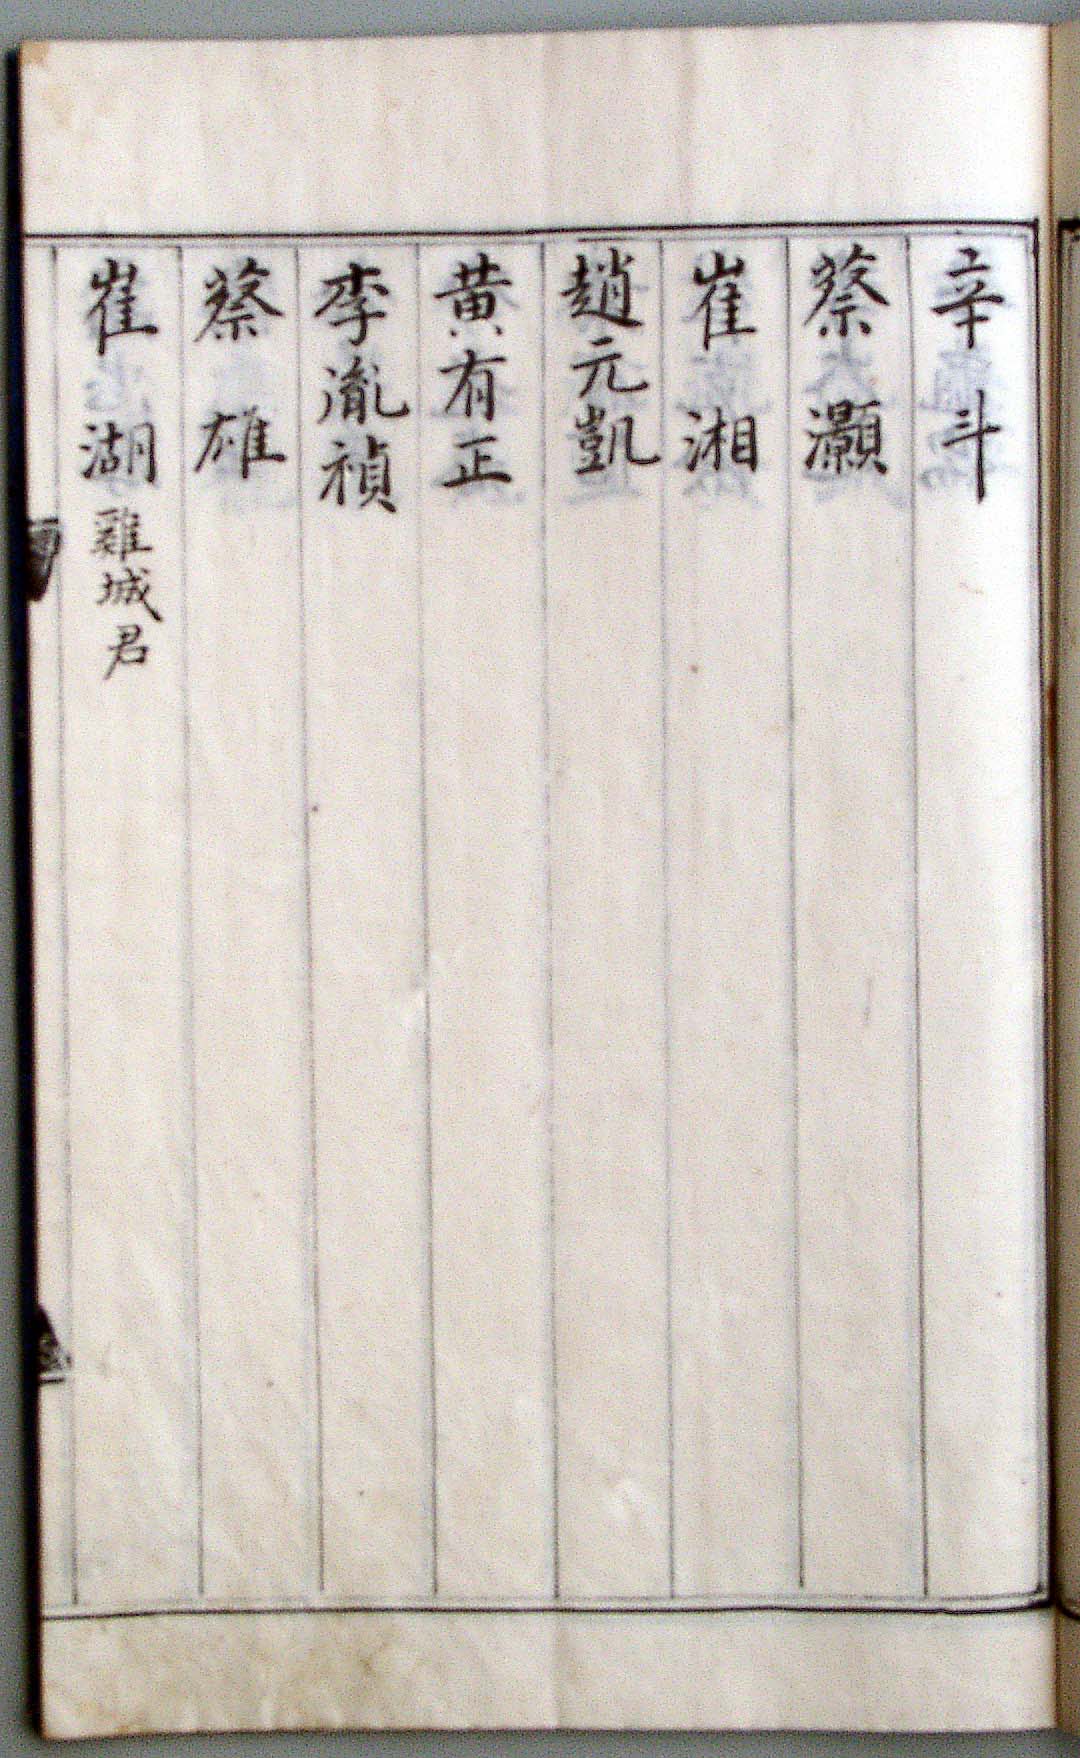 辛斗
蔡灝
崔湘
趙元凱
黃有正
李胤禎
蔡雄
崔湖 雞城君